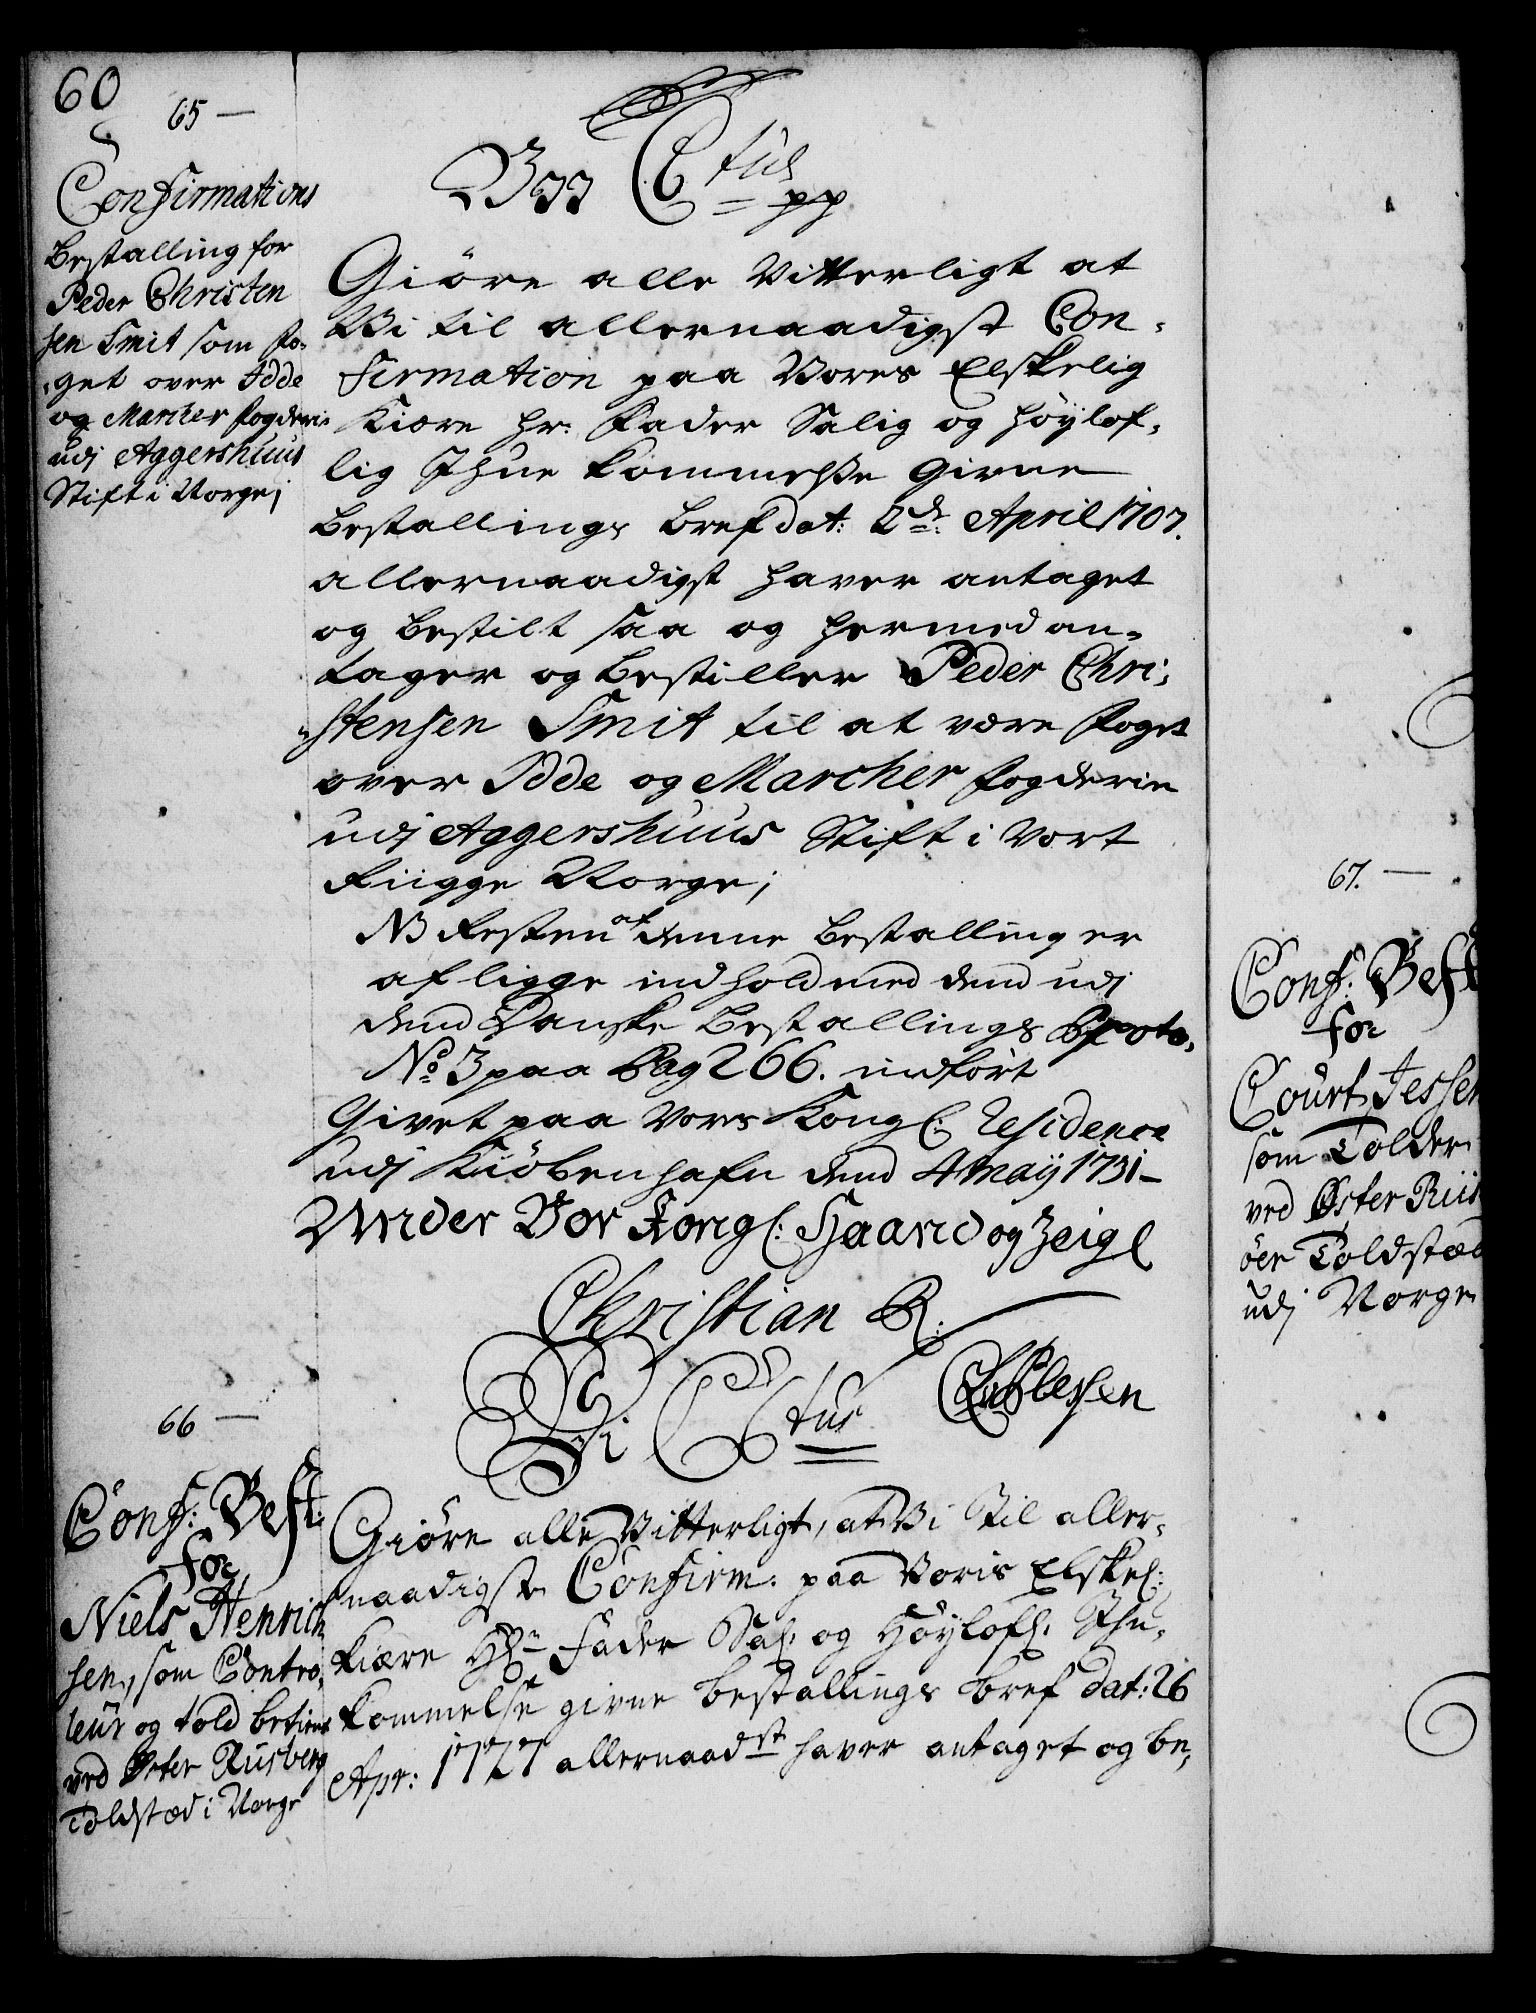 60
65 —
Confirmations
Bestalling for
Peder Christen
sen Smit som Fo-
get over Idde
og Marcher fogderie
udj Aggershuus
Stift i Norge;
Vii C 6tus
pp
Giöre alle Vitterligt at
Wi til allernaadigst Con-
firmation paa Vores Elskelig
Kiere Hr: Fader Salig og höylof-
lig Ihue kommelse Givne
Bestallings bref dat: 2de: April 1707.
allernaadigst haver antaget
og bestilt saa og hermed an-
tager og bestiller Peder Chri-
stensen Smit til at være Foget
over Idde og Marcher fogderie
udj Aggershuus Stift i Vort
Riigge Norge;
NB Resten af denne bestalling er
af ligge indhold med dend udj
dend Danske Bestallings Proto-
No 3 paa Pag 266. indfört
Givet paa Vores Kongl: Residence
udj Kiöbenhafn dend 4 maÿ 1731 –
Under Vor Kongl: Haand og Zeigl
Christian R:
CAvPlessen
66 —
Conf: Best:
for
Niels Henrich
sen, som Contro-
leur og told betient
ved Öster Riisberg
Toldstæd i Norge
Vi C 6tus
Giöre alle Vitterligt, at Vi til aller-
naadigste Confirm: paa Voris Elskel:
kiære Hrn Fader Sal: og Höylofl: Ihu-
kommelse givne bestallings bref dat: 26
Apr: 1727 allernaadst haver antaget og be-
67. —
Conf: Best
for
Court Jessen
som Tolder
ved Öster Riis
öer Toldstæd
udj Norge